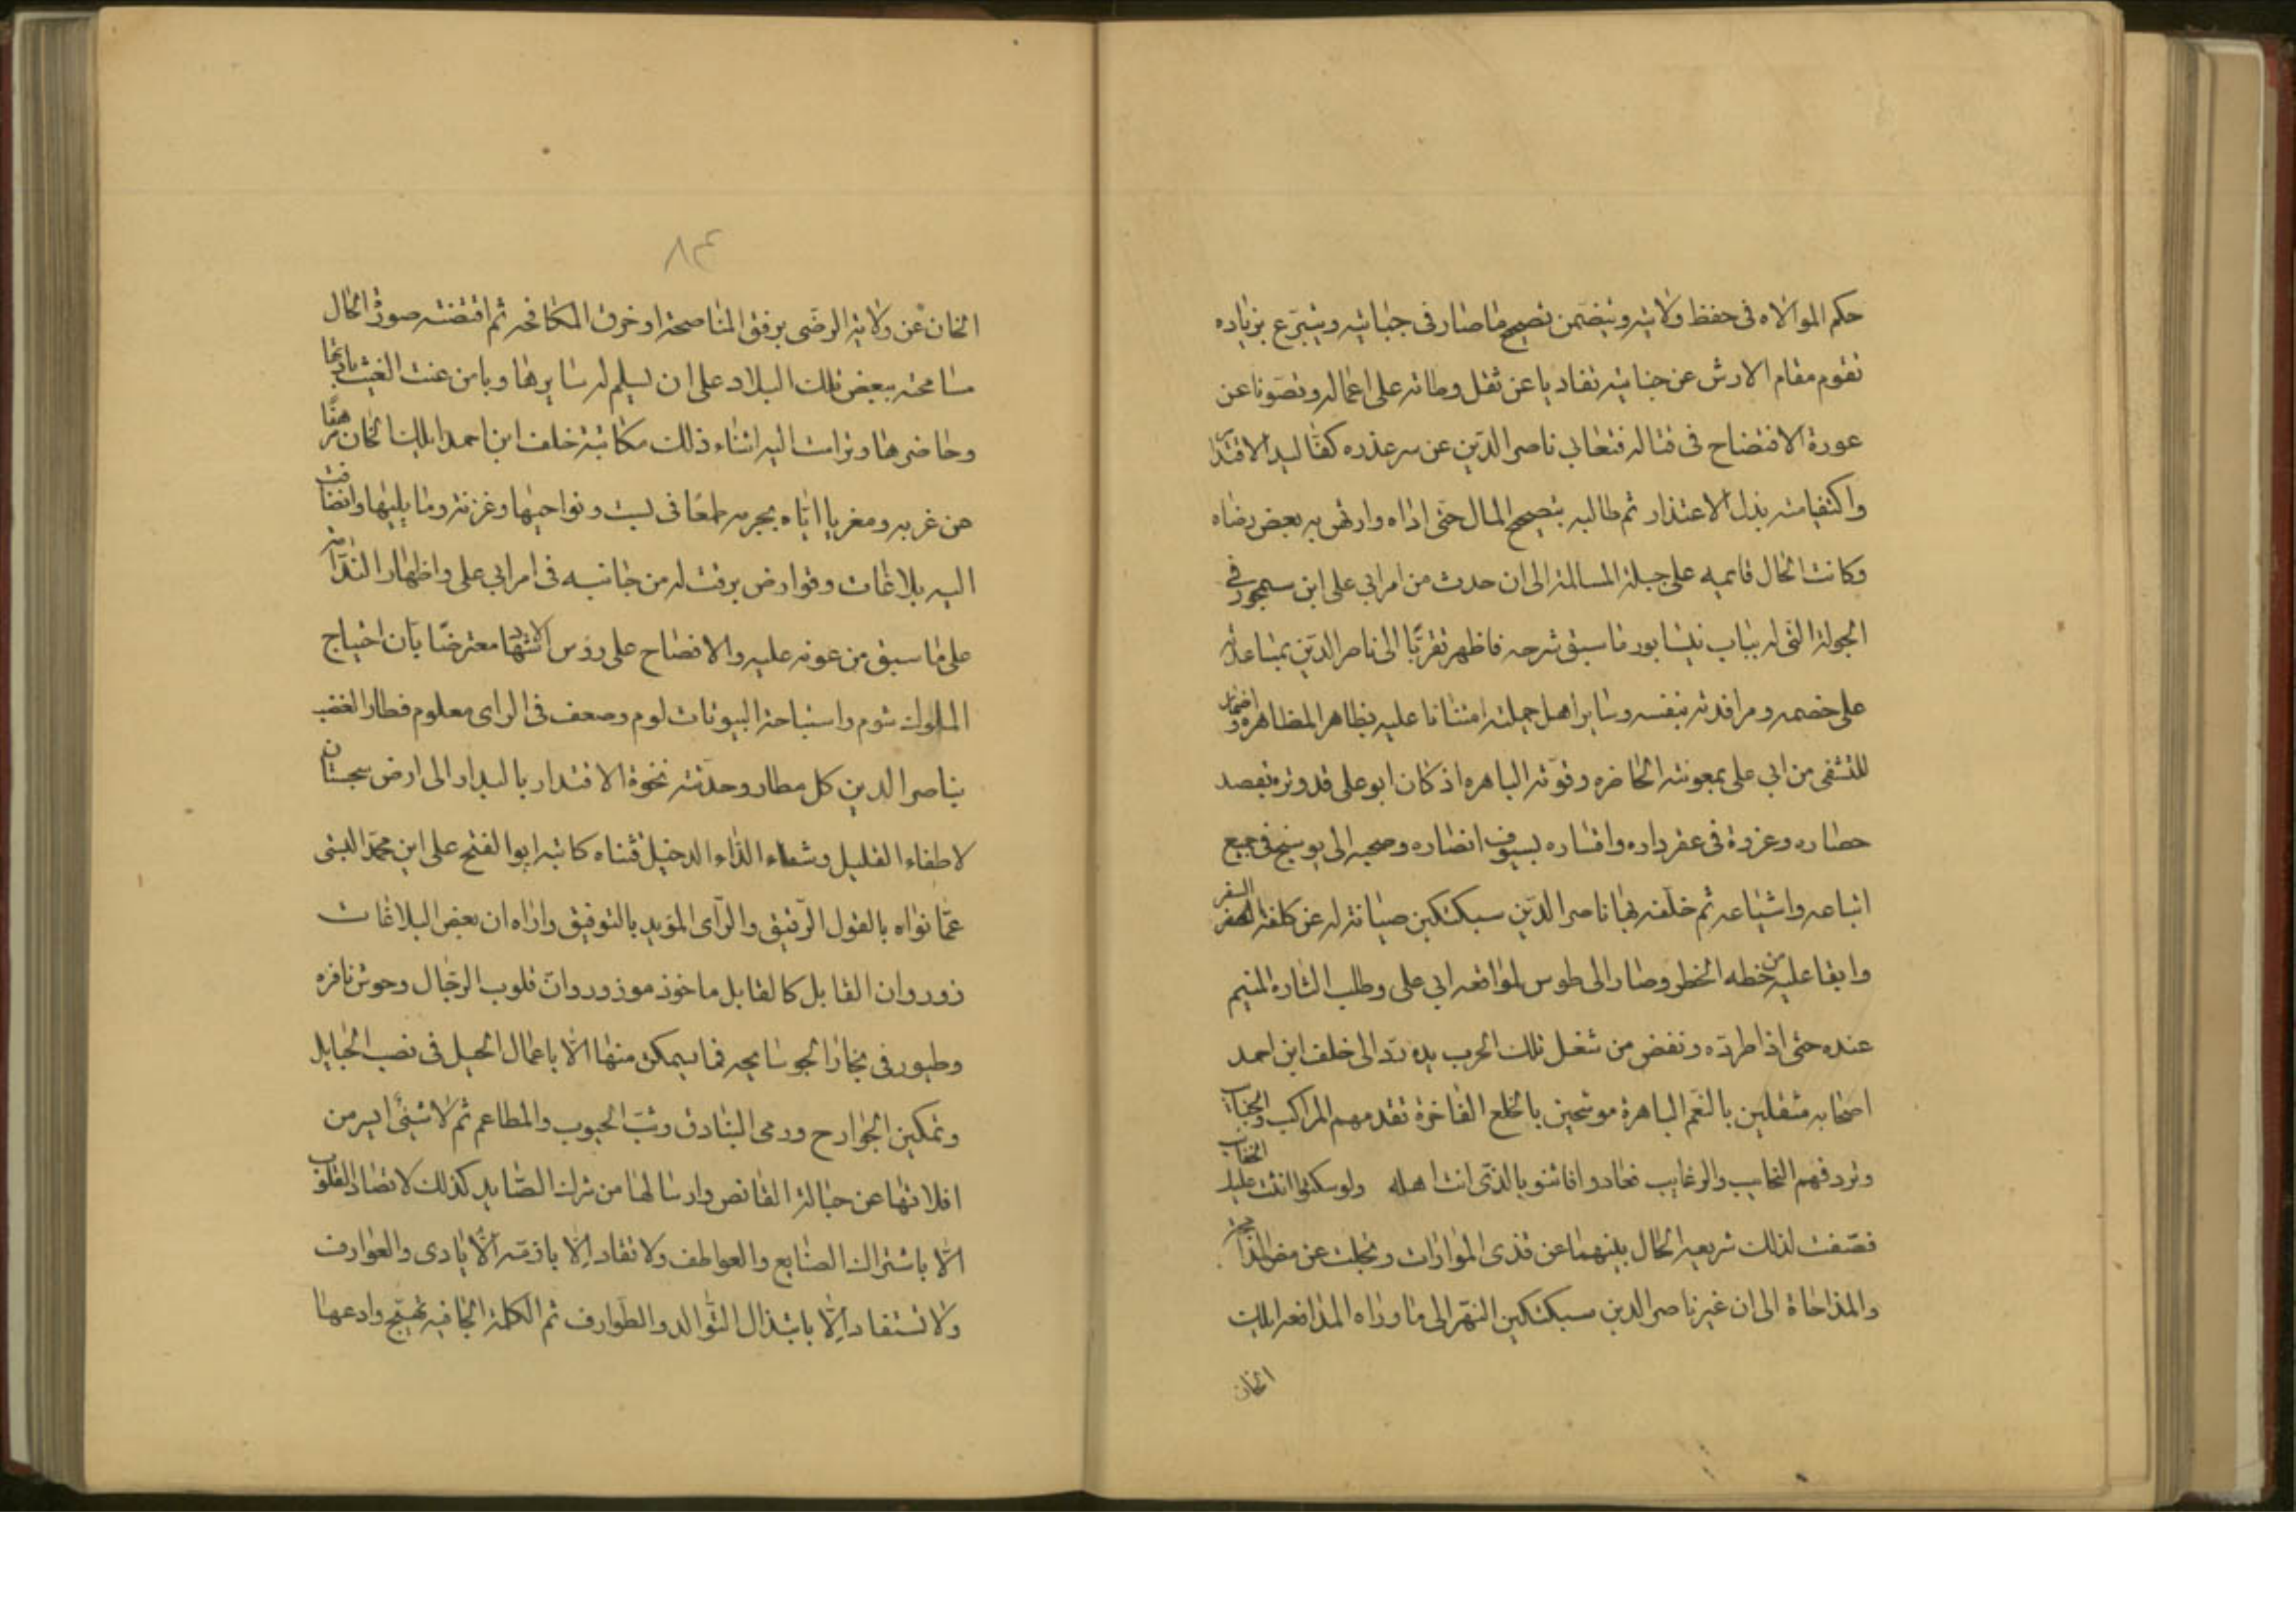 حكم الموالاه فى حفظ ولايته ويتضمن تصحيح ماصار فى جبايته ويتبرّع بزياده
تقوم مقام الارش عن جنايته تفاديا عن ثقل وطاته على اعماله وتصوّنا عن
عورة الافتضاح فى قتاله فتغابى ناصر الدّين عن سر عذره كفّا ليد الاقتدار
واكتفا منه بذل الاعتذار ثم طالبه بتصحيح المال حتى اداه وارتهن به بعض رضاه
وكانت الحال قايميه على جملة المسالمة الى ان حدث من امر ابى على ابن سيمجور فى
الجولة التى له بباب نيشابور ما سبق شرحه فاظهر تقربًا الى ناصر الدّين بمساعدته
على خصمه ومرافدته بنفسه وساير اهل جملته امتنانا عليه بظاهر المظاهره و
للتشفى من ابى على بمعونته الحاضره وقوّته الباهره اذ كان ابو على قد وتره بقصد
حصاره وغزوة فى عقر داره واقساره بسيوف انصاره وصحبه الى بوسنج فى جميع
اتباعه واشياعه ثم خلّفه بها ناصر الدّين سبكتكين صيانة له عن كلفة السفر
وابقا عليه من خطه الخطر وصار الى طوس لمواقعه ابى على وطلب الثاره المنيم
عنده حتى اذا طردّه ونفض من شغل تلك الحرب يده ردّ الى خلف ابن احمد
اصحابه مثقلين بالنّعم الباهرة موشحين بالخلع الفاخرة تقدمهم المراكب والجنايب
وتردفهم النجايب والرغايب فعادوا فاثنو بالذّى انت اهله ولو سكتوا اثنت عليك الحقايب
فصّفت لذلك شريعه الحال بينهما عن قذى الموارات ونجلت عن
والمداحاة الى ان عبر ناصر الدين سبكتكين النّهر الى ماوراه المدافعه ايلك
الخان
٨٤
الخان عن ولايته الرضى برفق المناصحة او خرق المكافحه ثم اقتضته صورة الحال
مسامحته ببعض تلك البلاد على ان يسلم له سايرها ويامن عنت العيث باديها
وحاضرها وتراءت اليه اثناء ذلك مكاتبة خلف ابن احمد ايلك الخان
عن غربه ومغريا ايّاه بحربه طمعًا فى بست ونواحيها وغزنه وما يليها وانضافت
اليه بلاغات وقوارض برقت له من جانبه فى امر ابى على واظهار الندامه
على ما سبق من عونه عليه والافصاح على رؤس الاشهاد معترضًا بان اجتياح
الملوك شوم واستباحة البيوتات لوم وضعف فى الراى معلوم فطار الغضب
بناصر الدين كل مطار وحدّثته نخوة الاقتدار بالبدار الى ارض سجستان
لاطفاء الغليل وشفاء الدّاء الدخيل فثناه كاتبه ابوا الفتح على ابن محمّد البستى
عمّا نواه بالقول الرّفيق والرّاى المؤيد بالتوفيق واراه ان بعض البلاغات
زور وان القابل كالقابل ماخوذ موزور وانّ قلوب الرجال وحوش نافره
وطيور فى مجار الجو سابحه فما يمكن منها الّا باعمال الحيل فى نصب الحبايل
وتمكين الجوارح ورمى البنادق وبثّ الحبوب والمطاعم ثم لا شيئ ايسر من
افلاتها عن حبالة القانص وارسالها من شرك الصّايد كذلك لا تصاد القلوب
الّا باشتراك الصنايع والعواطف ولا تقاد الّا بازمّة الايادى والعوارف
ولا تستفاد الّا بابتذال التّوالد والطّوارف ثم الكلمة الجافيه تهيّج وادعها